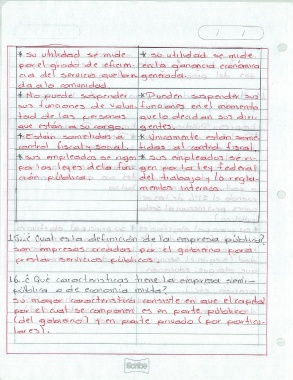 * Su utilidad se mide
por el grado de eficien-
cia del servicio que brin
da a la comunidad.
* No puede suspender
sus funciones de volun
tad de las personas
que están a su cargo.
* Están sometidas a
control fiscal y social.
* sus empleados se rigen
por las leyes de la fun
ción pública.
* su utilidad se mide
en la ganancia económica
generada.
* Pueden suspender sus
funciones en el momento
que lo decidan sus diri-
gentes.
* Únicamente están some
tidas al control fiscal.
* sus empleados se ri-
gen por la Ley Federal
del trabajo y la regla-
mentos internos.
15.-¿Cual es la definición de la empresa pública?
son empresas creadas por el gobierno para
prestar servicios públicos.
16.-¿Qué características tiene la empresa semi-
pública o de economía mixta?
Su mayor característica consiste en que el capital
por el cual se componen es en parte público
(del gobierno) y en parte privado (por particu-
lares).
Scribe